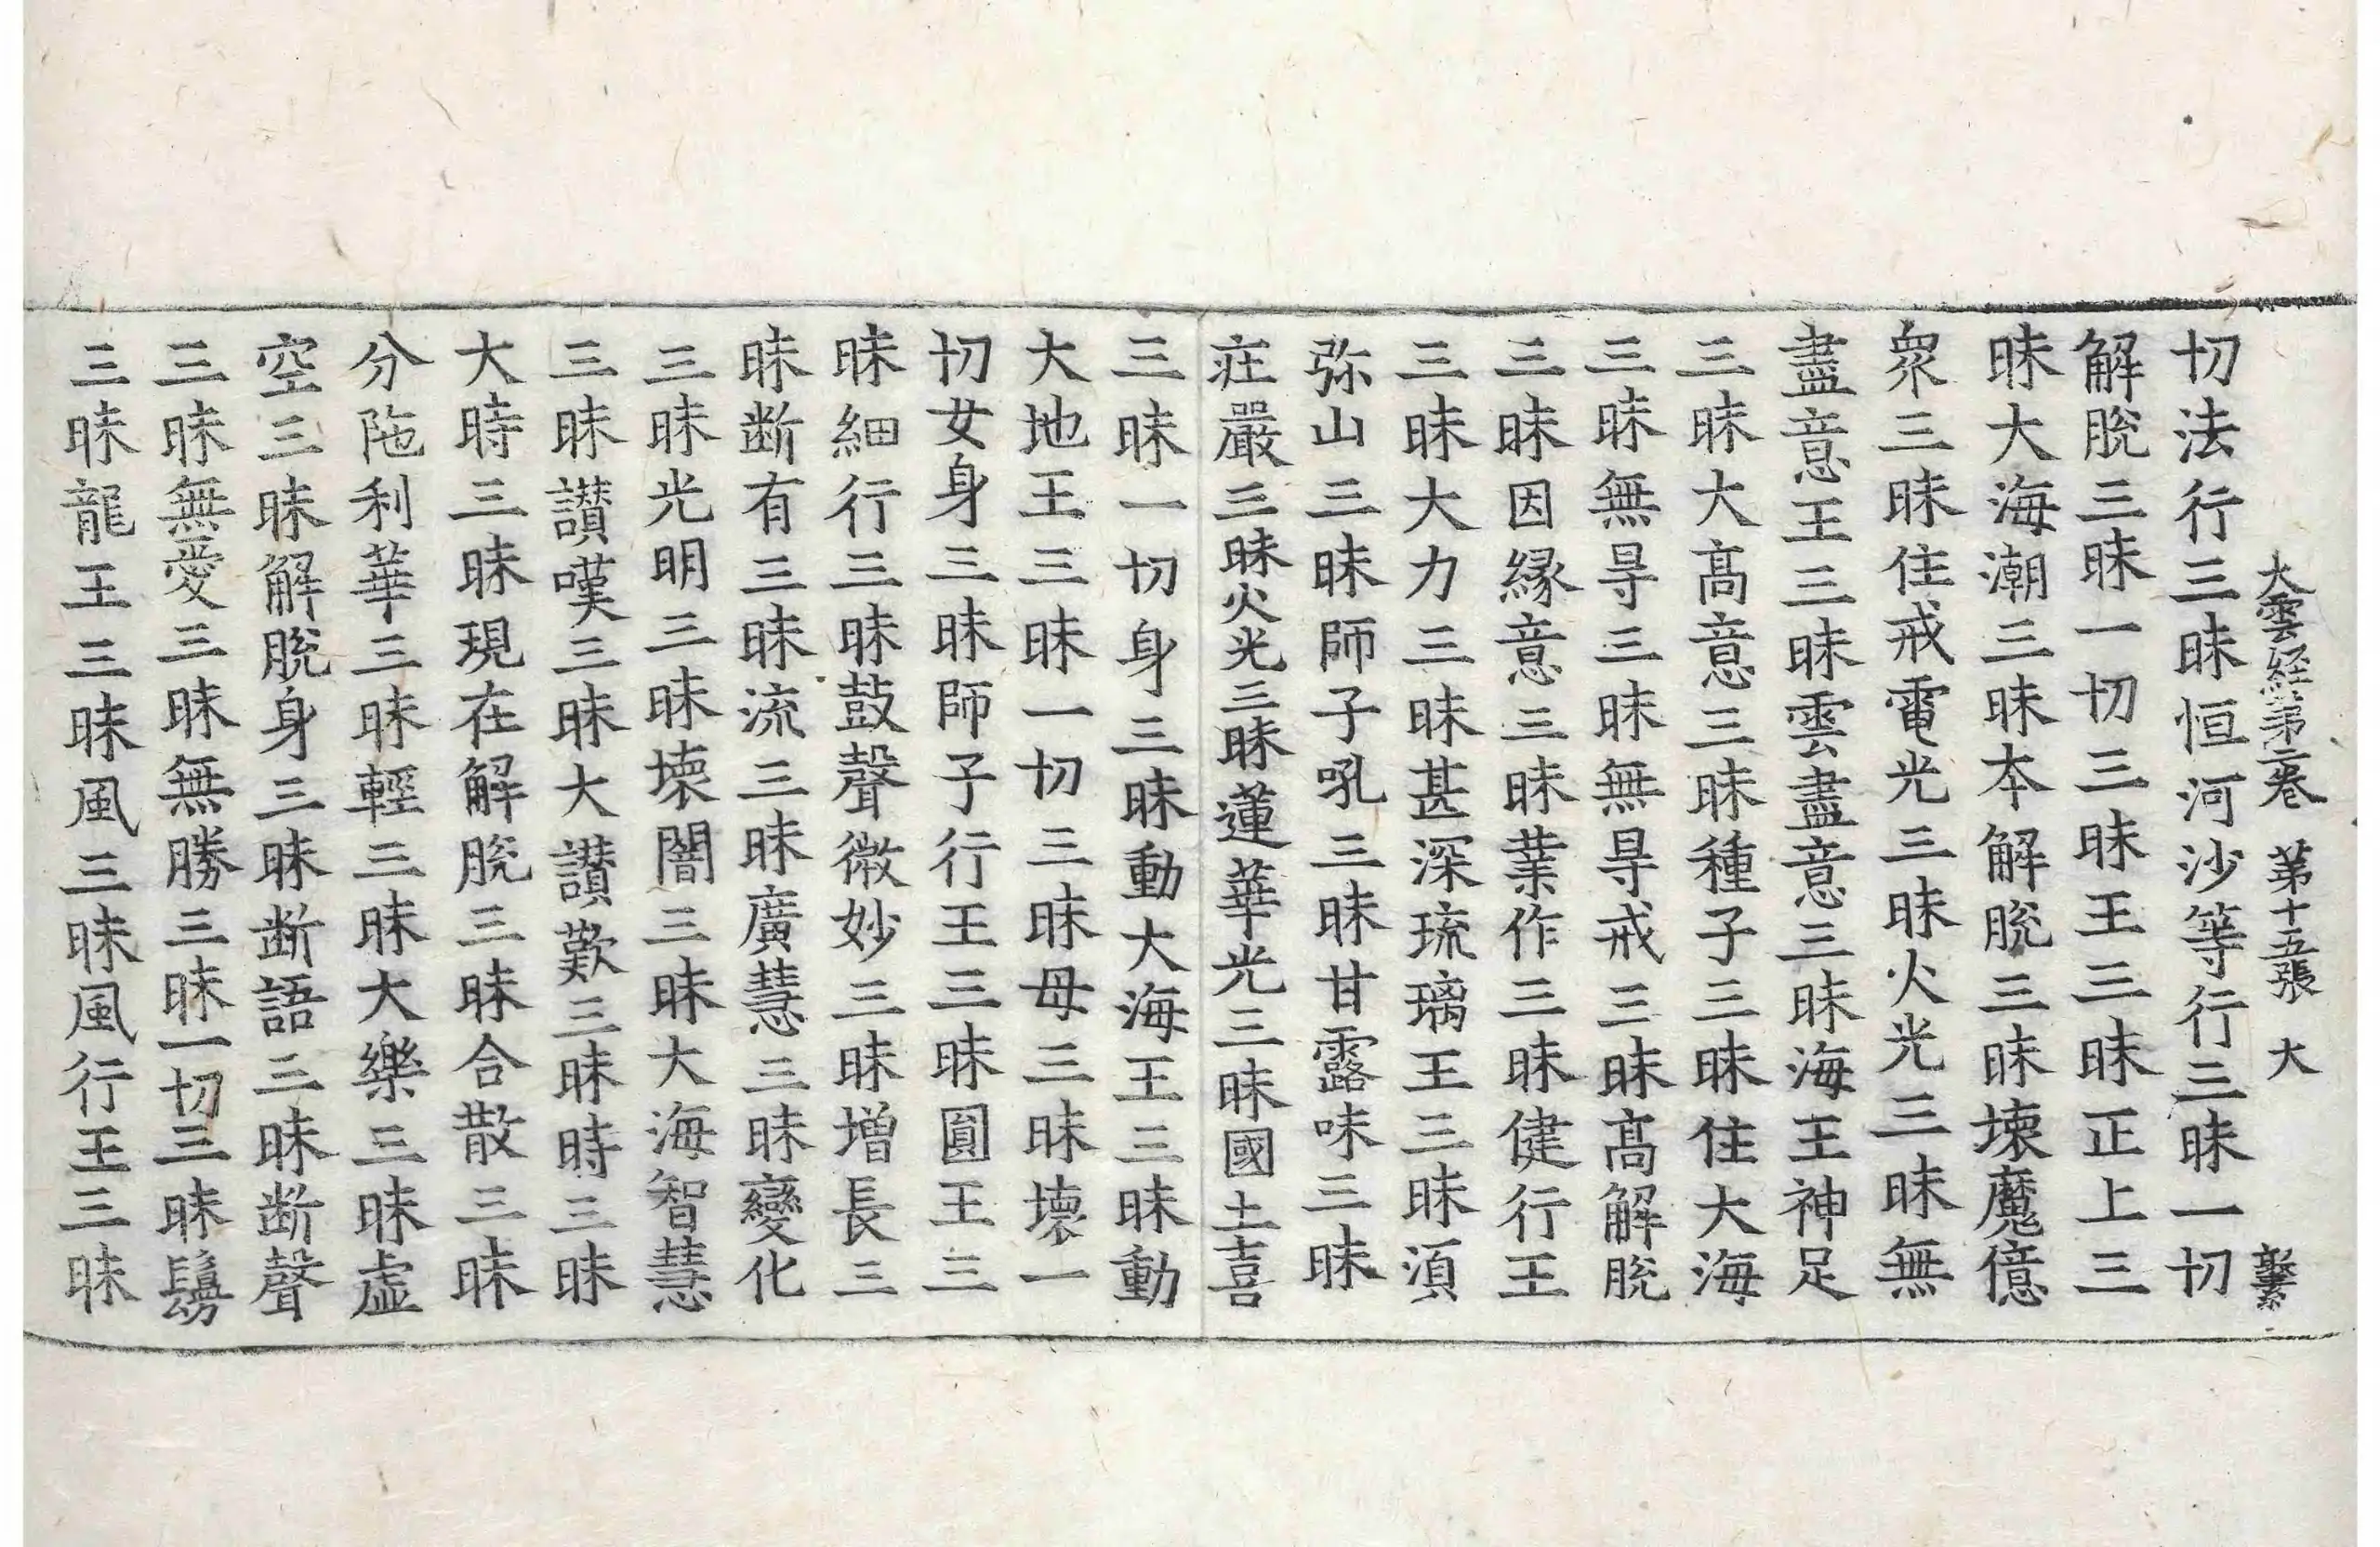 大雲経第二卷 第十五張 大
切法行三昧恒河沙等行三昧一切
解脫三昧一切三昧王三昧正上三
昧大海潮三昧本解脫三昧壊魔億
衆三昧住戒電光三昧火光三昧無
盡意王三昧雲盡意三昧海王神足
三昧大髙意三昧種子三昧住大海
三昧無㝵三昧無㝵戒三昧髙解脫
三昧因縁意三昧業作三昧健行王
三昧大力三昧甚深琉璃王三昧須
弥山三昧師子吼三昧甘露味三昧
莊嚴三昧火光三昧蓮華光三昧國土喜
三昧一切身三昧動大海王三昧動
大地王三昧一切三昧母三昧壊一
切女身三昧師子行王三昧圓王三
昧細行三昧鼓聲微妙三昧増長三
昧断有三昧流三昧廣慧三昧變化
三昧光明三昧壊闇三昧大海智慧
三昧讃嘆三昧大讃歎三昧時三昧
大時三昧現在解脫三昧合散三昧
分陁利華三昧輕三昧大樂三昧虛
空三昧解脫身三昧断語三昧断聲
三昧無愛三昧無勝三昧一切三昧鬘
三昧龍王三昧風三昧風行王三昧